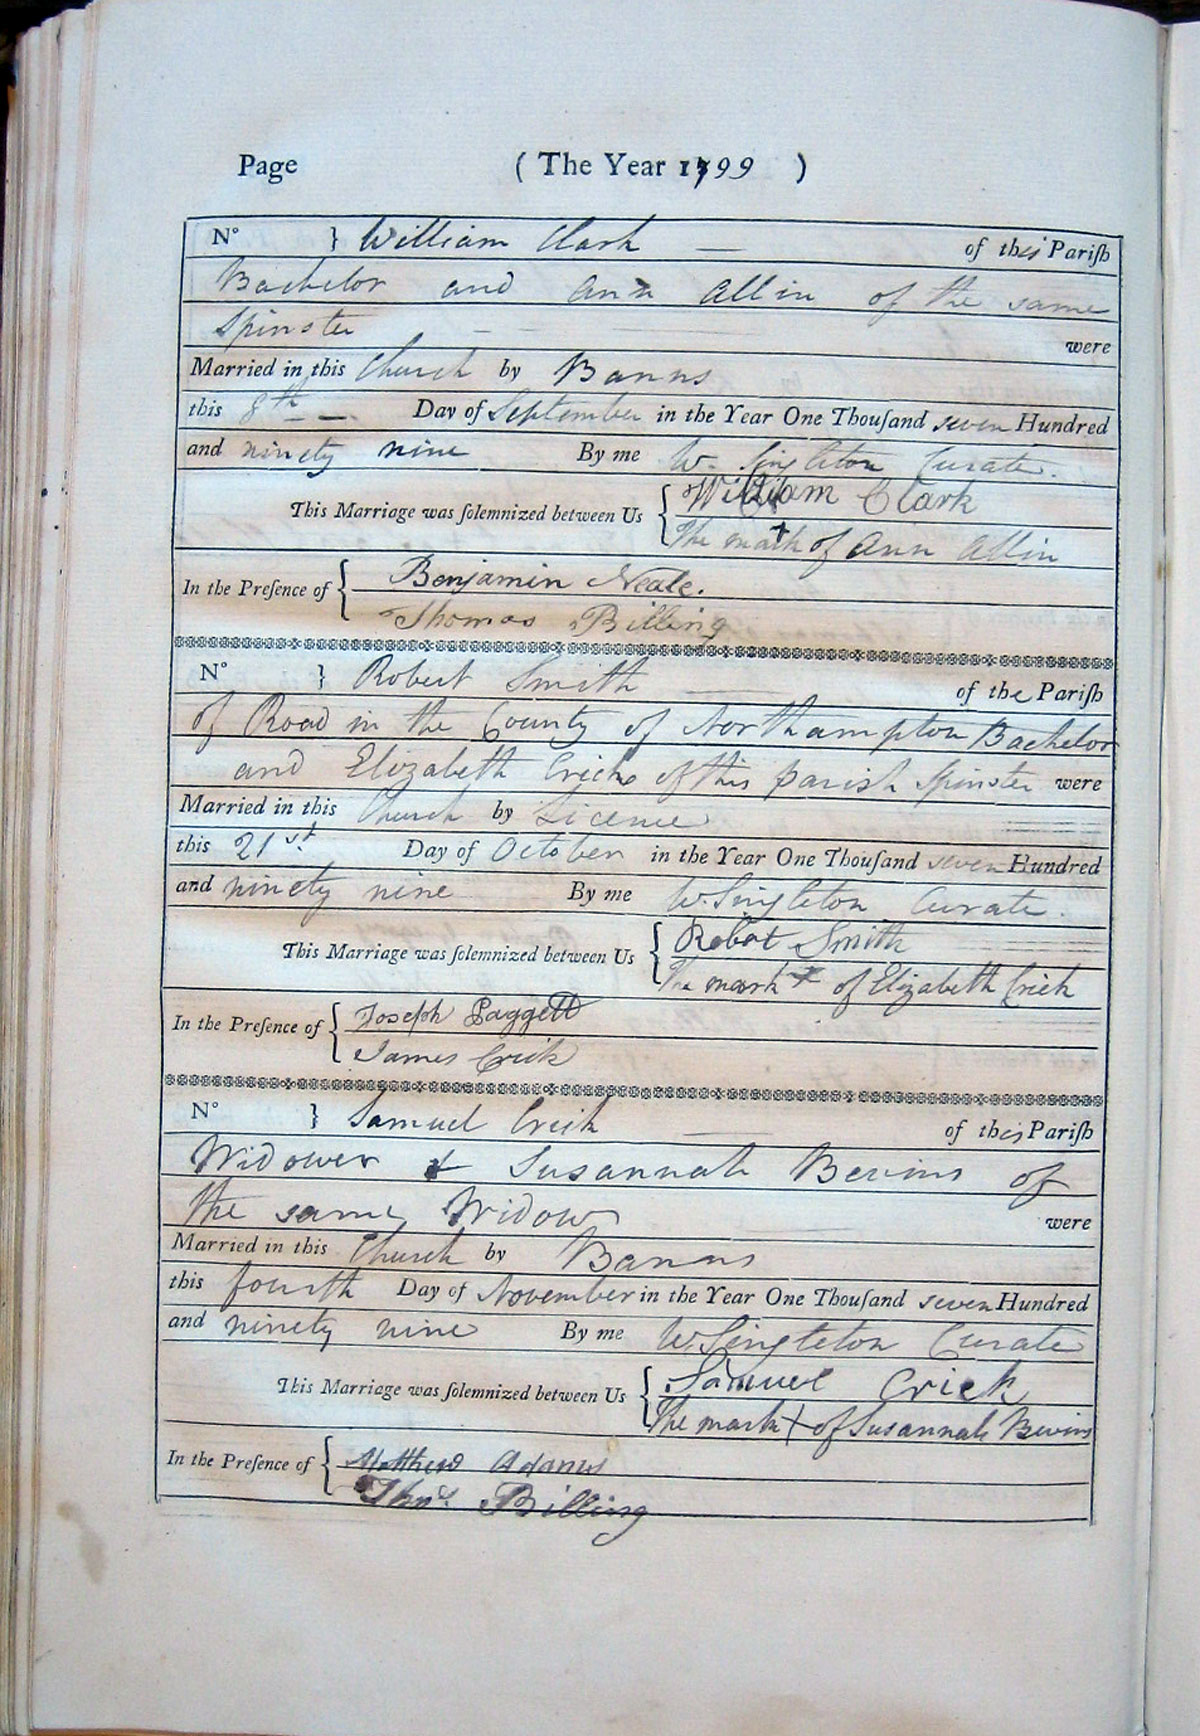 Page (The Year 1799 )
N° } William Clark — of this Pariſh
Bachelor and Ann Allin of the same
Spinster — — were
Married in this Church by Banns
this 8th — Day of September in the Year One Thouſand seven Hundred
and ninety nine By me W. Singleton Curate.
This Marriage was ſolemnized between Us { William Clark
The mark + of Ann Allin
In the Preſence of { Benjamin Neale.
Thomas Billing
N° } Robert Smith of the Pariſh
of Road in the County of Northampton Bachelor
and Elizabeth Crick of this parish Spinster were
Married in this Church by Licence
this 21st. Day of October in the Year One Thouſand seven Hundred
and ninety nine By me W. Singleton Curate.
This Marriage was ſolemnized between Us { Robat Smith
The mark + of Elizabeth Crick
In the Preſence of { Joseph Paggett
James Crick
N° } Samuel Crick — of this Pariſh
Widower & Susannah Bevins of
the same Widow were
Married in this Church by Banns
this fourth Day of November in the Year One Thouſand seven Hundred
and ninety nine By me W. Singleton Curate
This Marriage was ſolemnized between Us { Samuel Crick
The mark X of Susannah Bevins
In the Preſence of { Matthew Adams
Thos. Billing